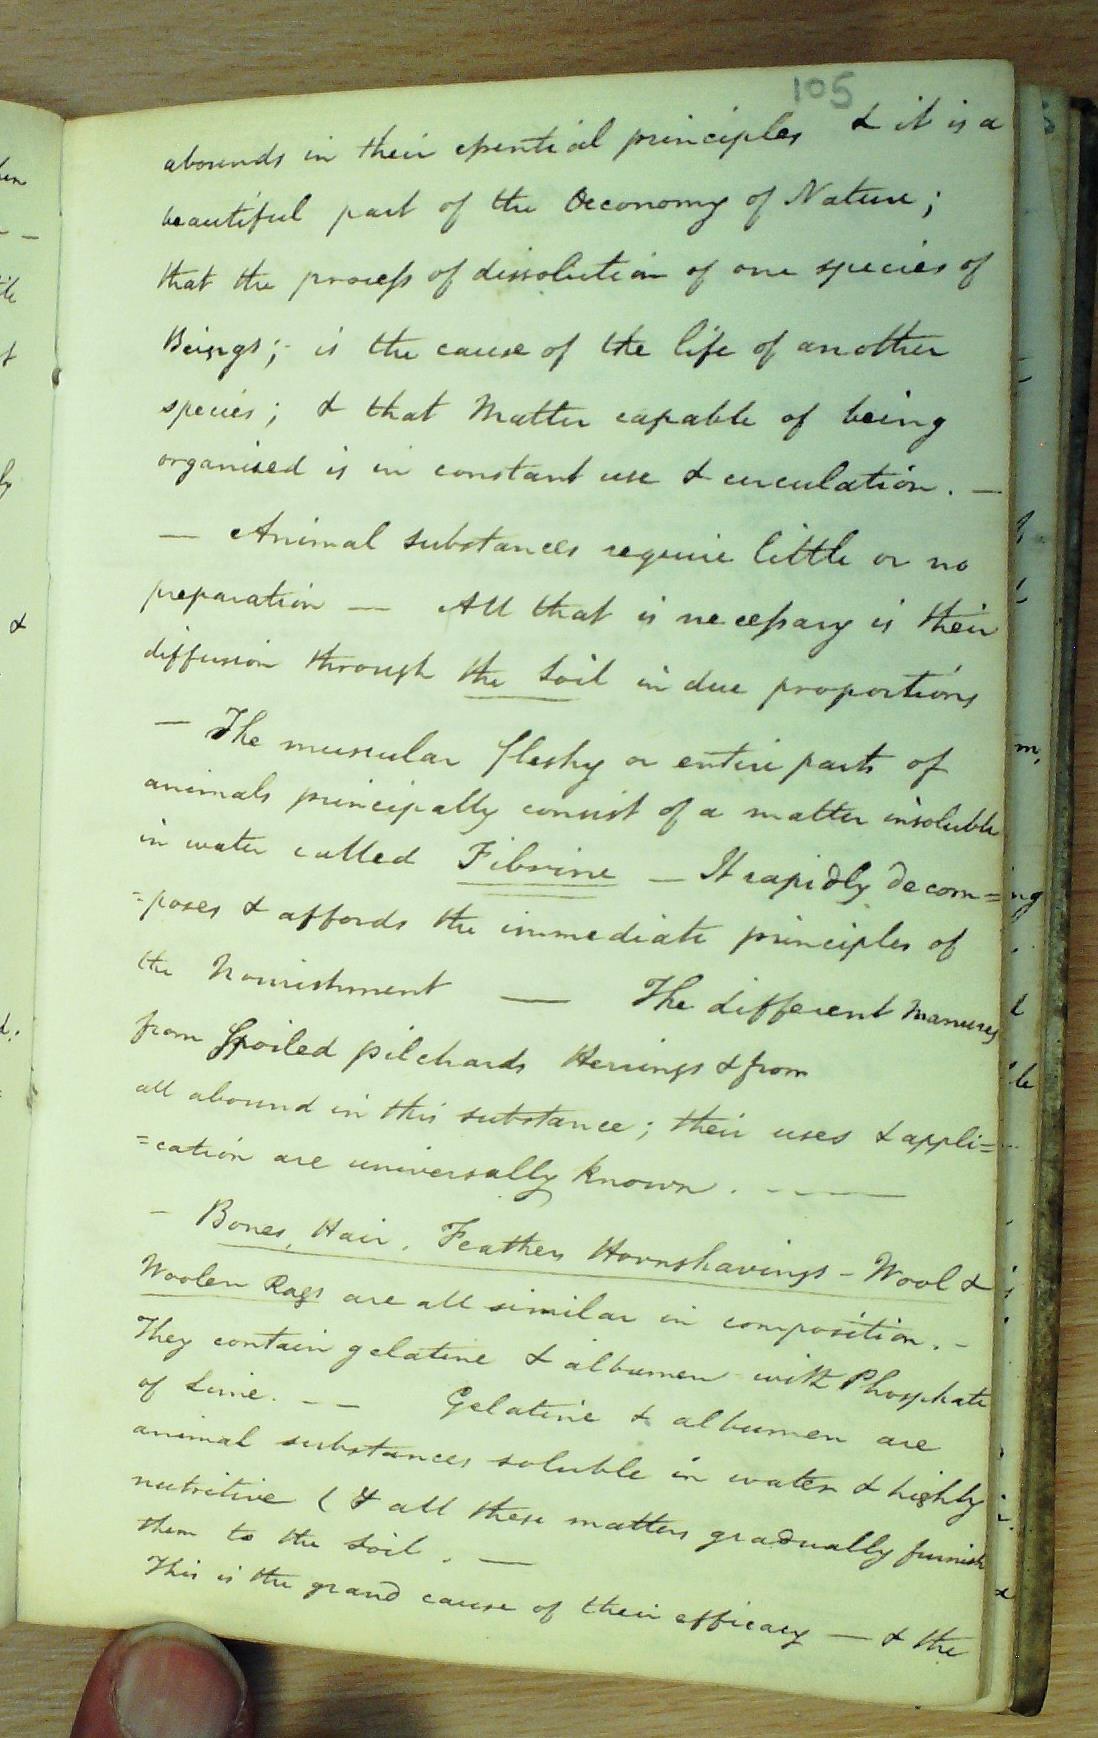 105
abounds in their essential principles & it is a
beautiful part of the Oeconomy of Nature;
that the process of dissolution of one species of
Beings; - is the cause of the life of another
species; & that Matter capable of being
organised is in constant use & circulation. —
— Animal substances require little or no
preparation — All that is necessary is their
diffusion through the Soil in due proportions
— The muscular fleshy or entire parts of
animals principally consist of a matter insoluble
in water called Fibrine — It rapidly decom=
=poses & affords the immediate principles of
the Nourishment — The different Manures
from Spoiled pilchards Herrings & from
all abound in this substance; their uses & appli=
=cation are universally known. - - —
— Bones, Hair, Feathers Hornshavings - Wool &
Woolen Rags are all similar in composition. -
They contain gelatine & albumen with Phosphate
of Lime. - — Gelatine & albumen are
animal substances soluble in water & highly
nutritive ( & all these matters gradually furnish
them to the Soil. —
This is the grand cause of their efficacy — & the